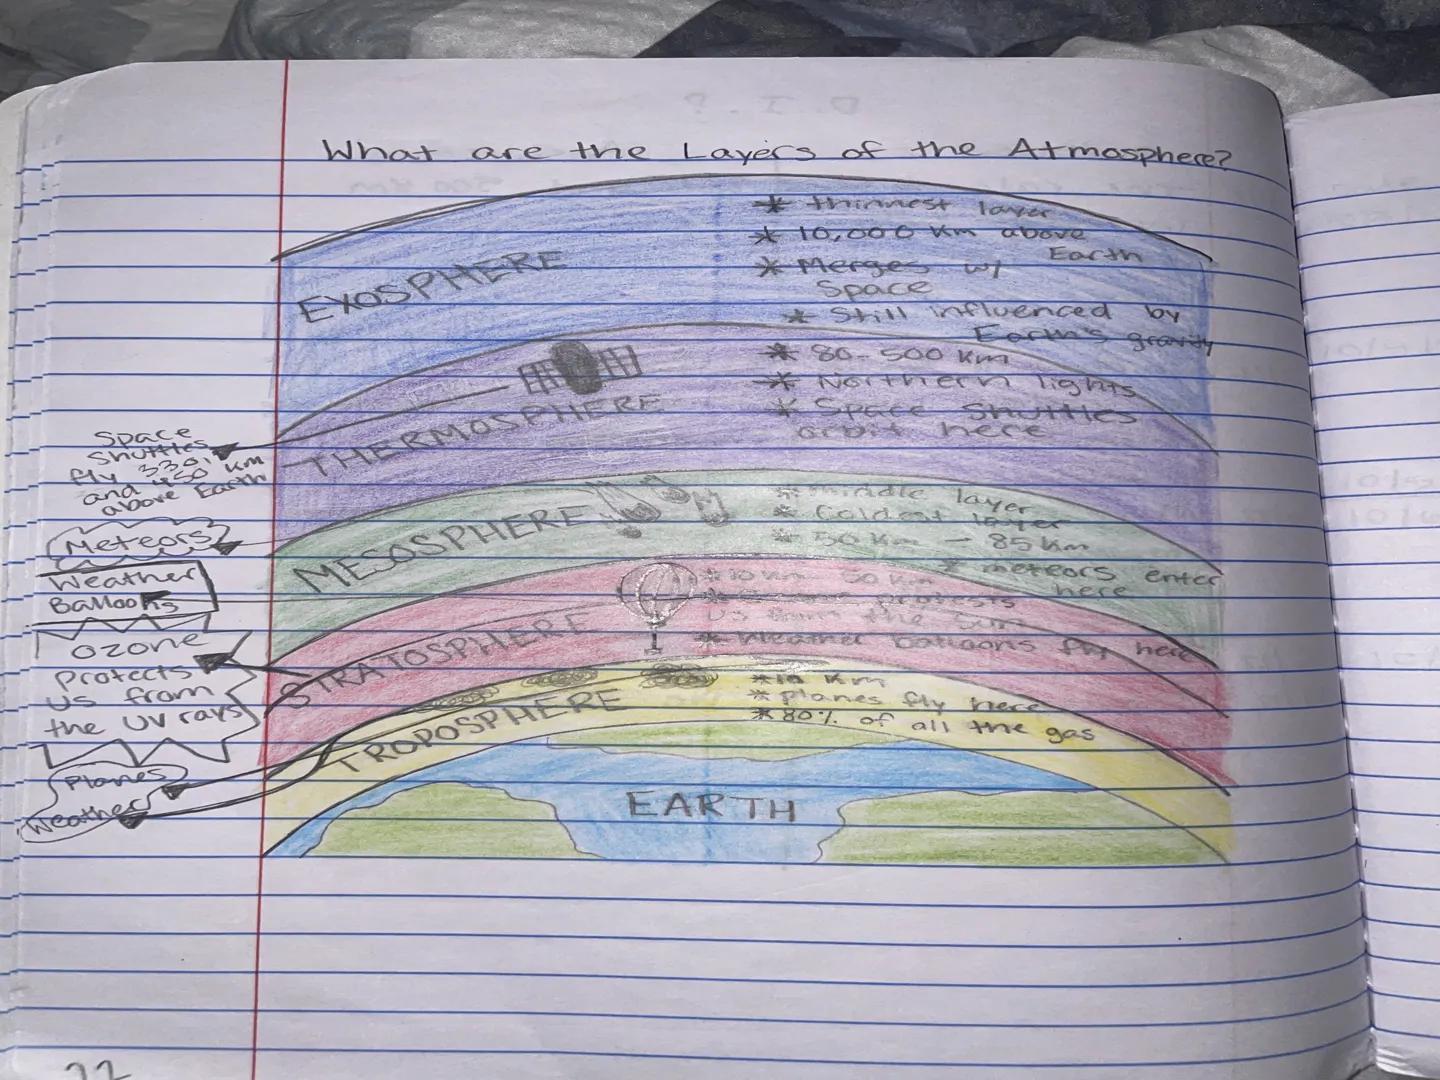 What are the Layers of the Atmosphere?
EXOSPHERE
* thinnest layer
* 10,000 km above
Earth
* Merges w/
Space
* Still influenced by
Earth's gravity
THERMOSPHERE
* 80-500 km
* Northern lights
* Space Shuttles
orbit here
Space
Shuttles
fly 330
and 450 km
above Earth
MESOSPHERE
* middle layer
* Coldest layer
* 50 km - 85 km
* meteors enter
here
Meteors
STRATOSPHERE
* 10 km 50 km
* protests
us from the sun
* Weather balloons fly here
Weather
Balloons
ozone
Protects
us from
the UV rays
TROPOSPHERE
* 10 km
* planes fly here
* 80% of all the gas
Planes
Weather
EARTH
22